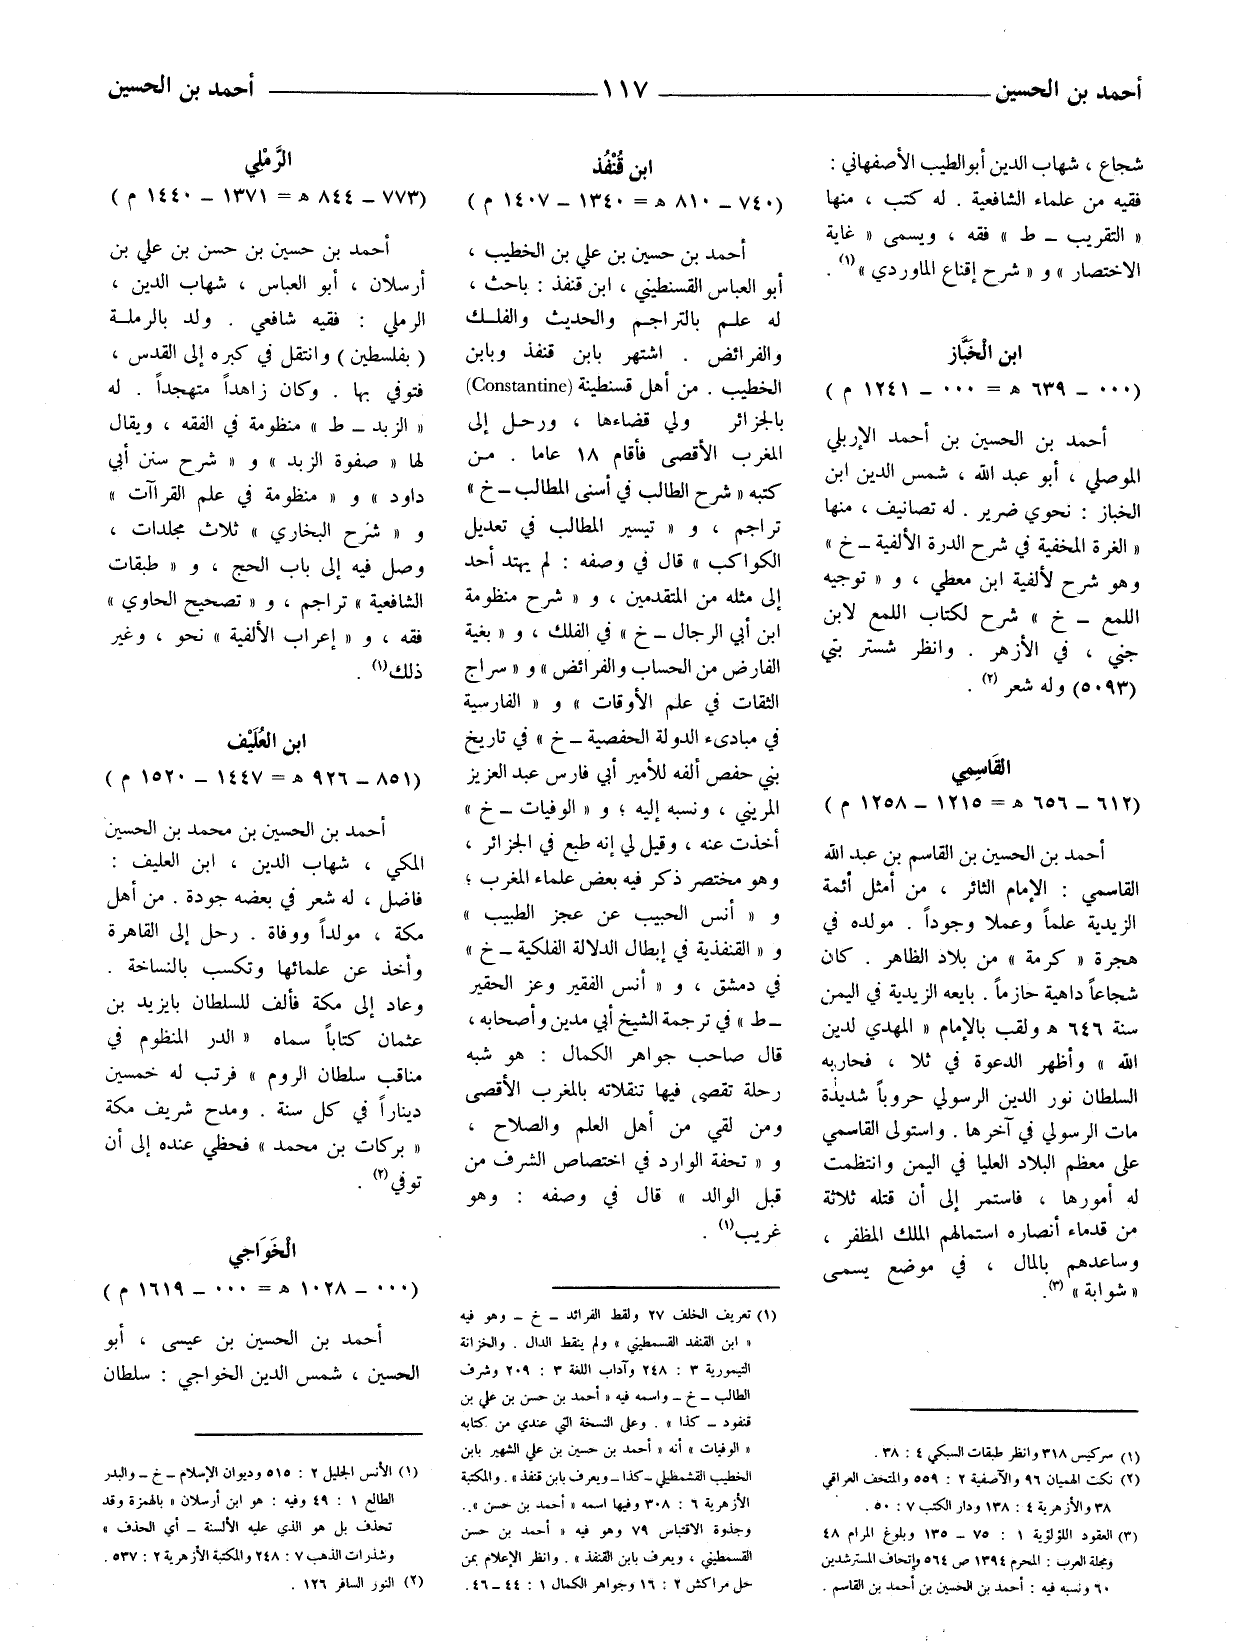 أحمد بن الحسين ١١٧ أحمد بن الحسين
شجاع ، شهاب الدين أبو الطيب الأصفهاني :
فقيه من علماء الشافعية . له كتب ، منها
« التقريب ــ ط » فقه ، ويسمى « غاية
الاختصار » و « شرح إقناع الماوردي »(١) .
ابن الْخَبَّاز
(٠٠٠ ــ ٦٣٩ هـ = ٠٠٠ ــ ١٢٤١ م)
أحمد بن الحسين بن أحمد الإربلي
الموصلي ، أبو عبد الله ، شمس الدين ابن
الخباز : نحوي ضرير . له تصانيف ، منها
« الغرة المخفية في شرح الدرة الألفية ــ خ »
وهو شرح لألفية ابن معطي ، و « توجيه
اللمع ــ خ » شرح لكتاب اللمع لابن
جني ، في الأزهر . وانظر شستر بتي
(٥٠٩٣) وله شعر (٢) .
القَاسِمِي
(٦١٢ ــ ٦٥٦ هـ = ١٢١٥ ــ ١٢٥٨ م)
أحمد بن الحسين بن القاسم بن عبد الله
القاسمي : الإمام الثائر ، من أمثل أئمة
الزيدية علماً وعملا وجوداً . مولده في
هجرة « كرمة » من بلاد الظاهر . كان
شجاعاً داهية حازماً . بايعه الزيدية في اليمن
سنة ٦٤٦ هـ ولقب بالإمام « المهدي لدين
الله » وأظهر الدعوة في ثلا ، فحاربه
السلطان نور الدين الرسولي حروباً شديدة
مات الرسولي في آخرها . واستولى القاسمي
على معظم البلاد العليا في اليمن وانتظمت
له أمورها ، فاستمر إلى أن قتله ثلاثة
من قدماء أنصاره استمالهم الملك المظفر ،
وساعدهم بالمال ، في موضع يسمى
« شوابة » (٣).
(١) سركيس ٣١٨ وانظر طبقات السبكي ٤ : ٣٨ .
(٢) نكت الهميان ٩٦ والآصفية ٢ : ٥٥٩ والمتحف العراقي
٣٨ والأزهرية ٤ : ١٣٨ ودار الكتب ٧ : ٥٠ .
(٣) العقود اللؤلؤية ١ : ٧٥ ــ ١٣٥ وبلوغ المرام ٤٨
ومجلة العرب : المحرم ١٣٩٤ ص ٥٦٤ وإتحاف المسترشدين
٦٠ ونسبه فيه : أحمد بن الحسين بن أحمد بن القاسم .
ابن قُنْفُذ
(٧٤٠ ــ ٨١٠ هـ = ١٣٤٠ ــ ١٤٠٧ م)
أحمد بن حسين بن علي بن الخطيب ،
أبو العباس القسنطيني ، ابن قنفذ : باحث ،
له علم بالتراجم والحديث والفلك
والفرائض . اشتهر بابن قنفذ وبابن
الخطيب . من أهل قسنطينة (Constantine)
بالجزائر ولي قضاءها ، ورحل إلى
المغرب الأقصى فأقام ١٨ عاما . من
كتبه « شرح الطالب في أسنى المطالب ــ خ »
تراجم ، و « تيسير المطالب في تعديل
الكواكب » قال في وصفه : لم يهتد أحد
إلى مثله من المتقدمين ، و « شرح منظومة
ابن أبي الرجال ــ خ » في الفلك ، و « بغية
الفارض من الحساب والفرائض » و « سراج
الثقات في علم الأوقات » و « الفارسية
في مبادىء الدولة الحفصية ــ خ » في تاريخ
بني حفص ألفه للأمير أبي فارس عبد العزيز
المريني ، ونسبه إليه ؛ و « الوفيات ــ خ »
أخذت عنه ، وقيل لي إنه طبع في الجزائر ،
وهو مختصر ذكر فيه بعض علماء المغرب ؛
و « أنس الحبيب عن عجز الطبيب »
و « القنفذية في إبطال الدلالة الفلكية ــ خ »
في دمشق ، و « أنس الفقير وعز الحقير
ــ ط » في ترجمة الشيخ أبي مدين وأصحابه ،
قال صاحب جواهر الكمال : هو شبه
رحلة تقصى فيها تنقلاته بالمغرب الأقصى
ومن لقي من أهل العلم والصلاح ،
و « تحفة الوارد في اختصاص الشرف من
قبل الوالد » قال في وصفه : وهو
غريب(١) .
(١) تعريف الخلف ٢٧ ولقط الفرائد ــ خ ــ وهو فيه
« ابن القنفد القسمطيني » ولم ينقط الدال . والخزانة
التيمورية ٣ : ٢٤٨ وآداب اللغة ٣ : ٢٠٩ وشرف
الطالب ــ خ ــ واسمه فيه « أحمد بن حسن بن علي بن
قنفود ــ كذا » . وعلى النسخة التي عندي من كتابه
« الوفيات » أنه « أحمد بن حسين بن علي الشهير بابن
الخطيب القشمطيلي ــ كذا ــ ويعرف بابن قنفذ » . والمكتبة
الأزهرية ٦ : ٣٠٨ وفيها اسمه « أحمد بن حسن » .
وجذوة الاقتباس ٧٩ وهو فيه « أحمد بن حسن
القسمطيني ، ويعرف بابن القنفذ » . وانظر الإعلام بمن
حل مراكش ٢ : ١٦ وجواهر الكمال ١ : ٤٤ ــ ٤٦ .
الرَّمْلِي
(٧٧٣ ــ ٨٤٤ هـ = ١٣٧١ ــ ١٤٤٠ م)
أحمد بن حسين بن حسن بن علي بن
أرسلان ، أبو العباس ، شهاب الدين ،
الرملي : فقيه شافعي . ولد بالرملة
( بفلسطين ) وانتقل في كبره إلى القدس ،
فتوفي بها . وكان زاهداً متهجداً . له
« الزبد ــ ط » منظومة في الفقه ، ويقال
لها « صفوة الزبد » و « شرح سنن أبي
داود » و « منظومة في علم القراآت »
و « شرح البخاري » ثلاث مجلدات ،
وصل فيه إلى باب الحج ، و « طبقات
الشافعية » تراجم ، و « تصحيح الحاوي »
فقه ، و « إعراب الألفية » نحو ، وغير
ذلك(١) .
ابن العُلَيْف
(٨٥١ ــ ٩٢٦ هـ = ١٤٤٧ ــ ١٥٢٠ م)
أحمد بن الحسين بن محمد بن الحسين
المكي ، شهاب الدين ، ابن العليف :
فاضل ، له شعر في بعضه جودة . من أهل
مكة ، مولداً ووفاة . رحل إلى القاهرة
وأخذ عن علمائها وتكسب بالنساخة .
وعاد إلى مكة فألف للسلطان بايزيد بن
عثمان كتاباً سماه « الدر المنظوم في
مناقب سلطان الروم » فرتب له خمسين
ديناراً في كل سنة . ومدح شريف مكة
« بركات بن محمد » فحظي عنده إلى أن
توفي(٢) .
الْخَوَاجي
(٠٠٠ ــ ١٠٢٨ هـ = ٠٠٠ ــ ١٦١٩ م)
أحمد بن الحسين بن عيسى ، أبو
الحسين ، شمس الدين الخواجي : سلطان
(١) الأنس الجليل ٢ : ٥١٥ وديوان الإسلام ــ خ ــ والبدر
الطالع ١ : ٤٩ وفيه : هو ابن أرسلان « بالهمزة وقد
تحذف بل هو الذي عليه الألسنة ــ أي الحذف »
وشذرات الذهب ٧ : ٢٤٨ والمكتبة الأزهرية ٢ : ٥٣٧ .
(٢) النور السافر ١٢٦ .